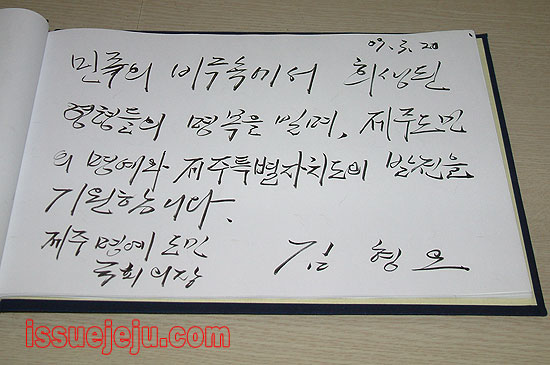 09. 3. 20
민족의 비극속에서 희생된
영령들의 명복을 빌며, 제주도민
의 명예와 제주특별자치도의 발전을
기원합니다.
제주 명예 도민
국회의장
김 형 오
issuejeju.com